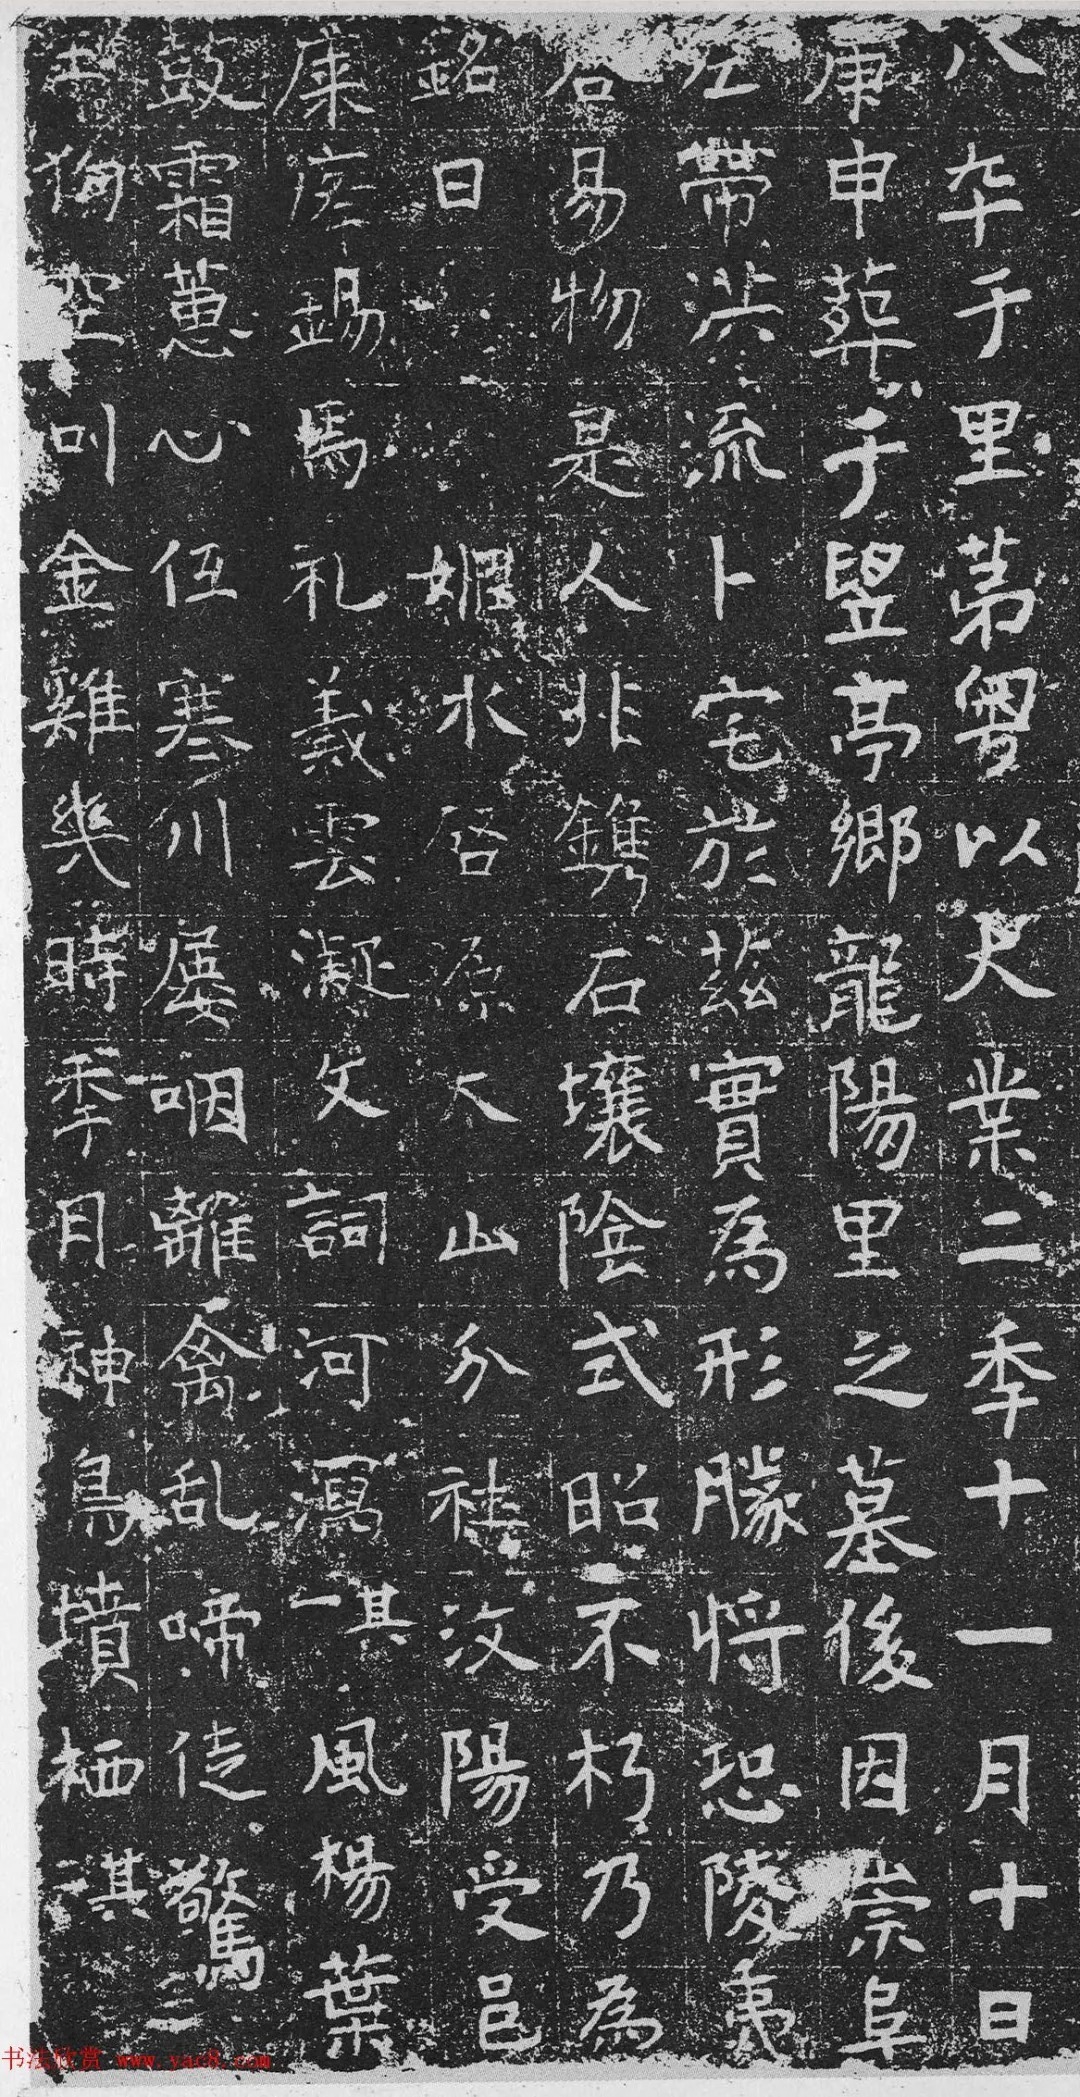 八九千里第粤以大業二年十一月十日
庚申葬于竪亭鄉龍陽里之墓後因崇阜
左帶洪流卜宅於茲實為形勝將恐陵夷
谷易物是人非鐫石壤陰式昭不朽乃為
銘曰 媯水啓源大山分社汝陽受邑
庿庭錫馬礼義雲凝文詞河瀉其一風楊葉
鼓霜蕙心伍寒川屡咽離禽乱啼徒驚
狗空叫金雞幾時年月神鳥墳栖其二
書法欣赏 www.yac8.com